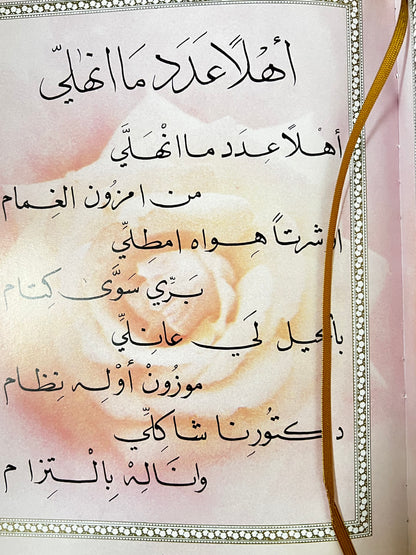 أهْلًا عَدَد مَا انهَلِّي
أهْلًا عِدَد ما انْهَلَّي
من امزُون الغِمام
شرتاً هِواه امطِلِّي
بَرِّي سَوَّى كِتام
بأكيل لَي عانِلِّي
موزُونْ أوْلِه نِظام
دكتُورِنا شاكِلِّي
وانَالِهْ بِالْتِزام